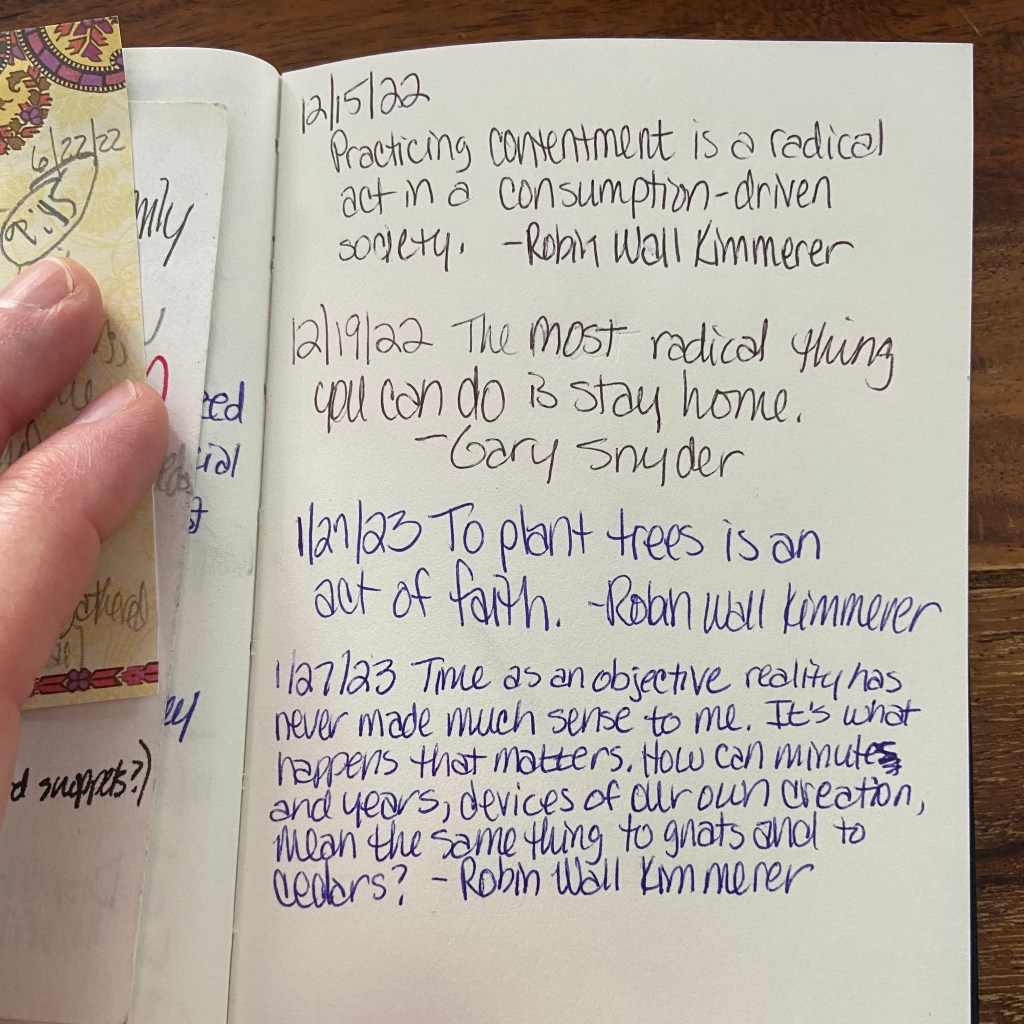 6/22/22
mily
eed
ial
st
athered
ey
d snippets?)
12/15/22
Practicing contentment is a radical
act in a consumption-driven
society. -Robin Wall Kimmerer
12/19/22 The most radical thing
you can do is stay home.
-Gary Snyder
1/27/23 To plant trees is an
act of faith. -Robin Wall Kimmerer
1/27/23 Time as an objective reality has
never made much sense to me. It's what
happens that matters. How can minutes
and years, devices of our own creation,
mean the same thing to gnats and to
cedars? - Robin Wall Kimmerer